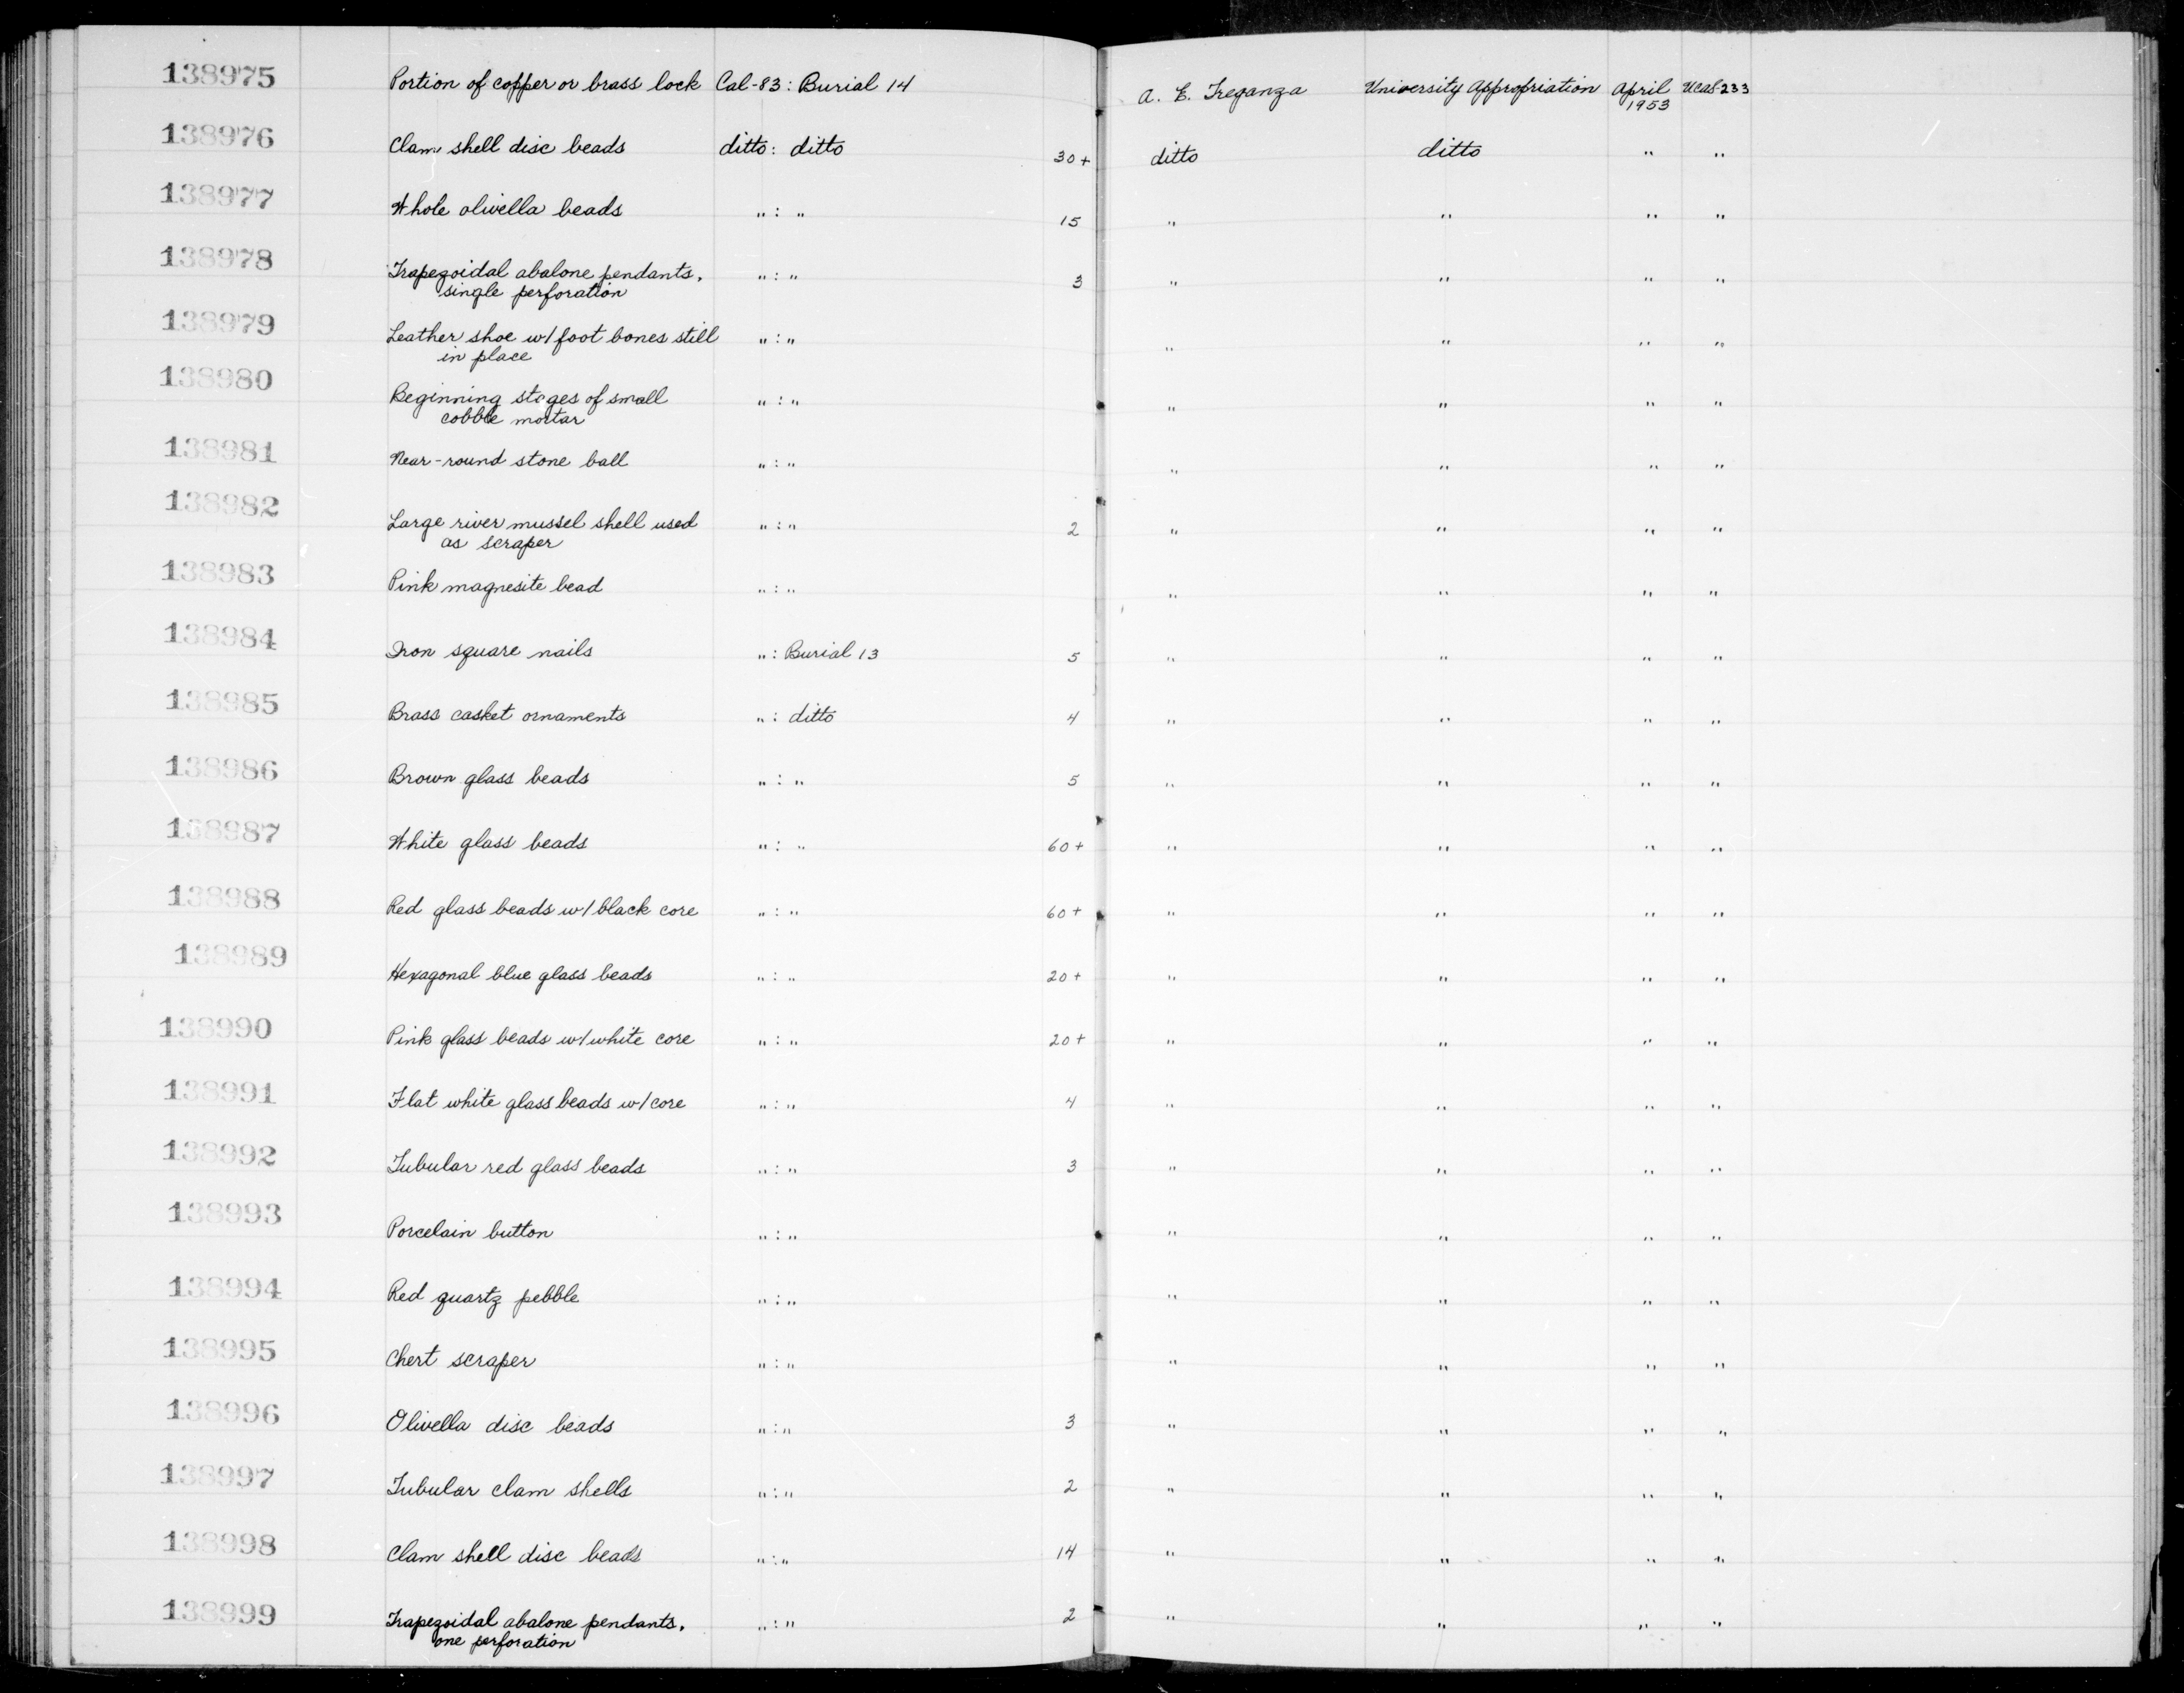 138975 Portion of copper or brass lock Cal-83: Burial 14 A. E. Treganza University Appropriation April 1953 UCAS-233
138976 Clam shell disc beads ditto: ditto 30+ ditto ditto " "
138977 Whole olivella beads " : " 15 " " " "
138978 Trapezoidal abalone pendants, " : " 3 " " " "
single perforation
138979 Leather shoe w/ foot bones still " : " " " " "
in place
138980 Beginning stages of small " : " " " " "
cobble mortar
138981 Near-round stone ball " : " " " " "
138982 Large river mussel shell used " : " 2 " " " "
as scraper
138983 Pink magnesite bead " : " " " " "
138984 Iron square nails " : Burial 13 5 " " " "
138985 Brass casket ornaments " : ditto 4 " " " "
138986 Brown glass beads " : " 5 " " " "
138987 White glass beads " : " 60+ " " " "
138988 Red glass beads w/ black core " : " 60+ " " " "
138989 Hexagonal blue glass beads " : " 20+ " " " "
138990 Pink glass beads w/ white core " : " 20+ " " " "
138991 Flat white glass beads w/ core " : " 4 " " " "
138992 Tubular red glass beads " : " 3 " " " "
138993 Porcelain button " : " " " " "
138994 Red quartz pebble " : " " " " "
138995 Chert scraper " : " " " " "
138996 Olivella disc beads " : " 3 " " " "
138997 Tubular clam shells " : " 2 " " " "
138998 Clam shell disc beads " : " 14 " " " "
138999 Trapezoidal abalone pendants, " : " 2 " " " "
one perforation